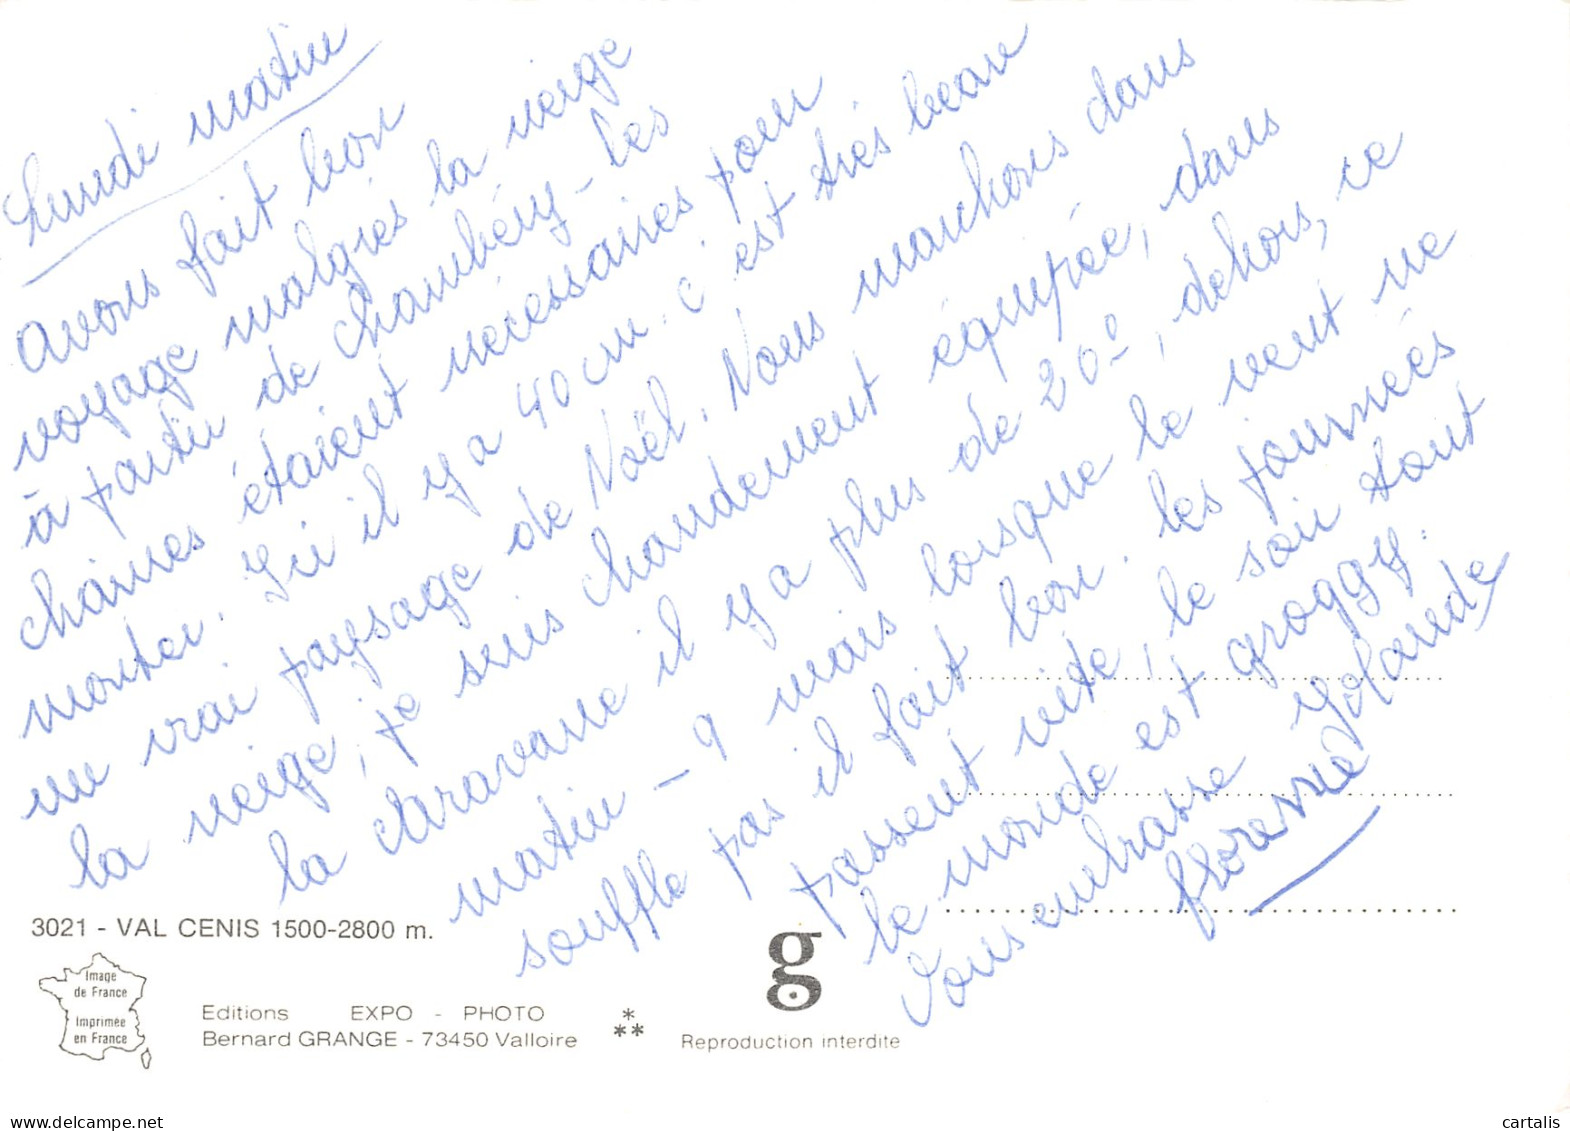 Lundi matin
Avons fait bon
voyage malgrés la neige
à partir de Chambéry - les
chaines étaient nécessaires pour
monter. Ici il y a 40 cm. c'est très beau
un vrai paysage de Noël. Nous marchons dans
la neige, je suis chaudement équipée, dans
la caravane il y a plus de 20°, dehors, ce
matin - 9 mais lorsque le vent ne
souffle pas il fait bon. les journées
passent vite, le soir tout
le monde est groggy.
Vous embrasse Yolande
3021 - VAL CENIS 1500-2800 m.
Image
de France
Imprimée
en France
Editions EXPO - PHOTO
Bernard GRANGE - 73450 Valloire
*
**
g
Reproduction interdite
cartalis